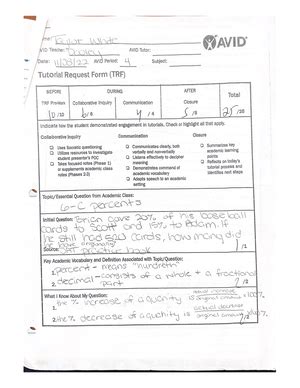 Name: Taylor
AVID
AVID Teacher: AVID Tutor:
Date: 11/03/22 AVID Period: 4 Subject:
Tutorial Request Form (TRF)
BEFORE DURING AFTER
Total
TRF Pre-work Collaborative Inquiry Communication Closure
10/10 6/8 4/ 5/8 25/
Indicate how the student demonstrated engagement in tutorials. Check or highlight all that apply.
Collaborative Inquiry Communication Closure
Uses Socratic questioning
Utilizes resources to investigate student presenter's POC
Takes focused notes (Phase 1) or supplements academic class notes (Phases 2-3)
Communicates clearly, both verbally and nonverbally
Listens effectively to decipher meaning
Demonstrates command of academic vocabulary
Adopts speech to an academic setting
Summarizes key academic learning points
Reflects on today's tutorial process and identifies next steps
Topic/Essential Question from Academic Class:
6-C percents
Initial Question: Brian gave 20% of his baseball
cards to Scott and 15% to Adam. if
he still had 520 cards, how many did
he have
Source: practice book /2
Key Academic Vocabulary and Definition Associated with Topic/Question:
1. percent - means "hundreth"
2. decimal - consists of a whole + a fractional
part /2
What I Know About My Question:
1. the % increase of a quantity is actual increase original amount x 100%
2. the % decrease of a quantity is actual decrease original amount /2